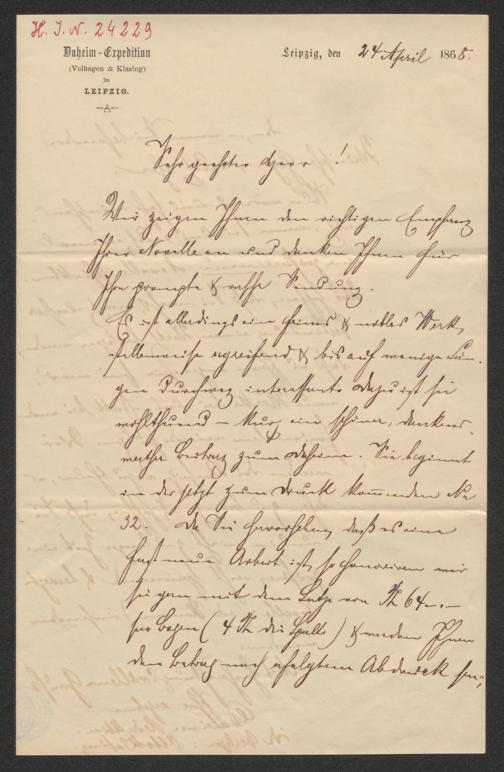 H. I. N. 24229
Daheim-Expedition
(Velhagen & Klasing)
in
LEIPZIG.
Leipzig, den 24 April 1868.
Sehr geehrter Herr!
Wir zeigen Ihnen den richtigen Empfang
Ihrer Novelle an und danken Ihnen für
Ihre prompte & rasche Sendung.
Es ist allerdings ein feines & nobles Werk,
stellenweise ergreifend & bis auf wenige Län-
gen durchweg interessant dazu ist sie
wohlthuend – kurz ein schöner, dankens-
werther Beitrag zum Daheim. Sie beginnt
in der jetzt zum Druck kommenden No
32. Da Sie hervorheben, daß es eine
fast neue Arbeit ist, so honoriren wir
sie gern mit dem Satze von 64.–
pro Bogen (4 die Spalte) & werden Ihnen
den Betrag nach erfolgtem Abdruck